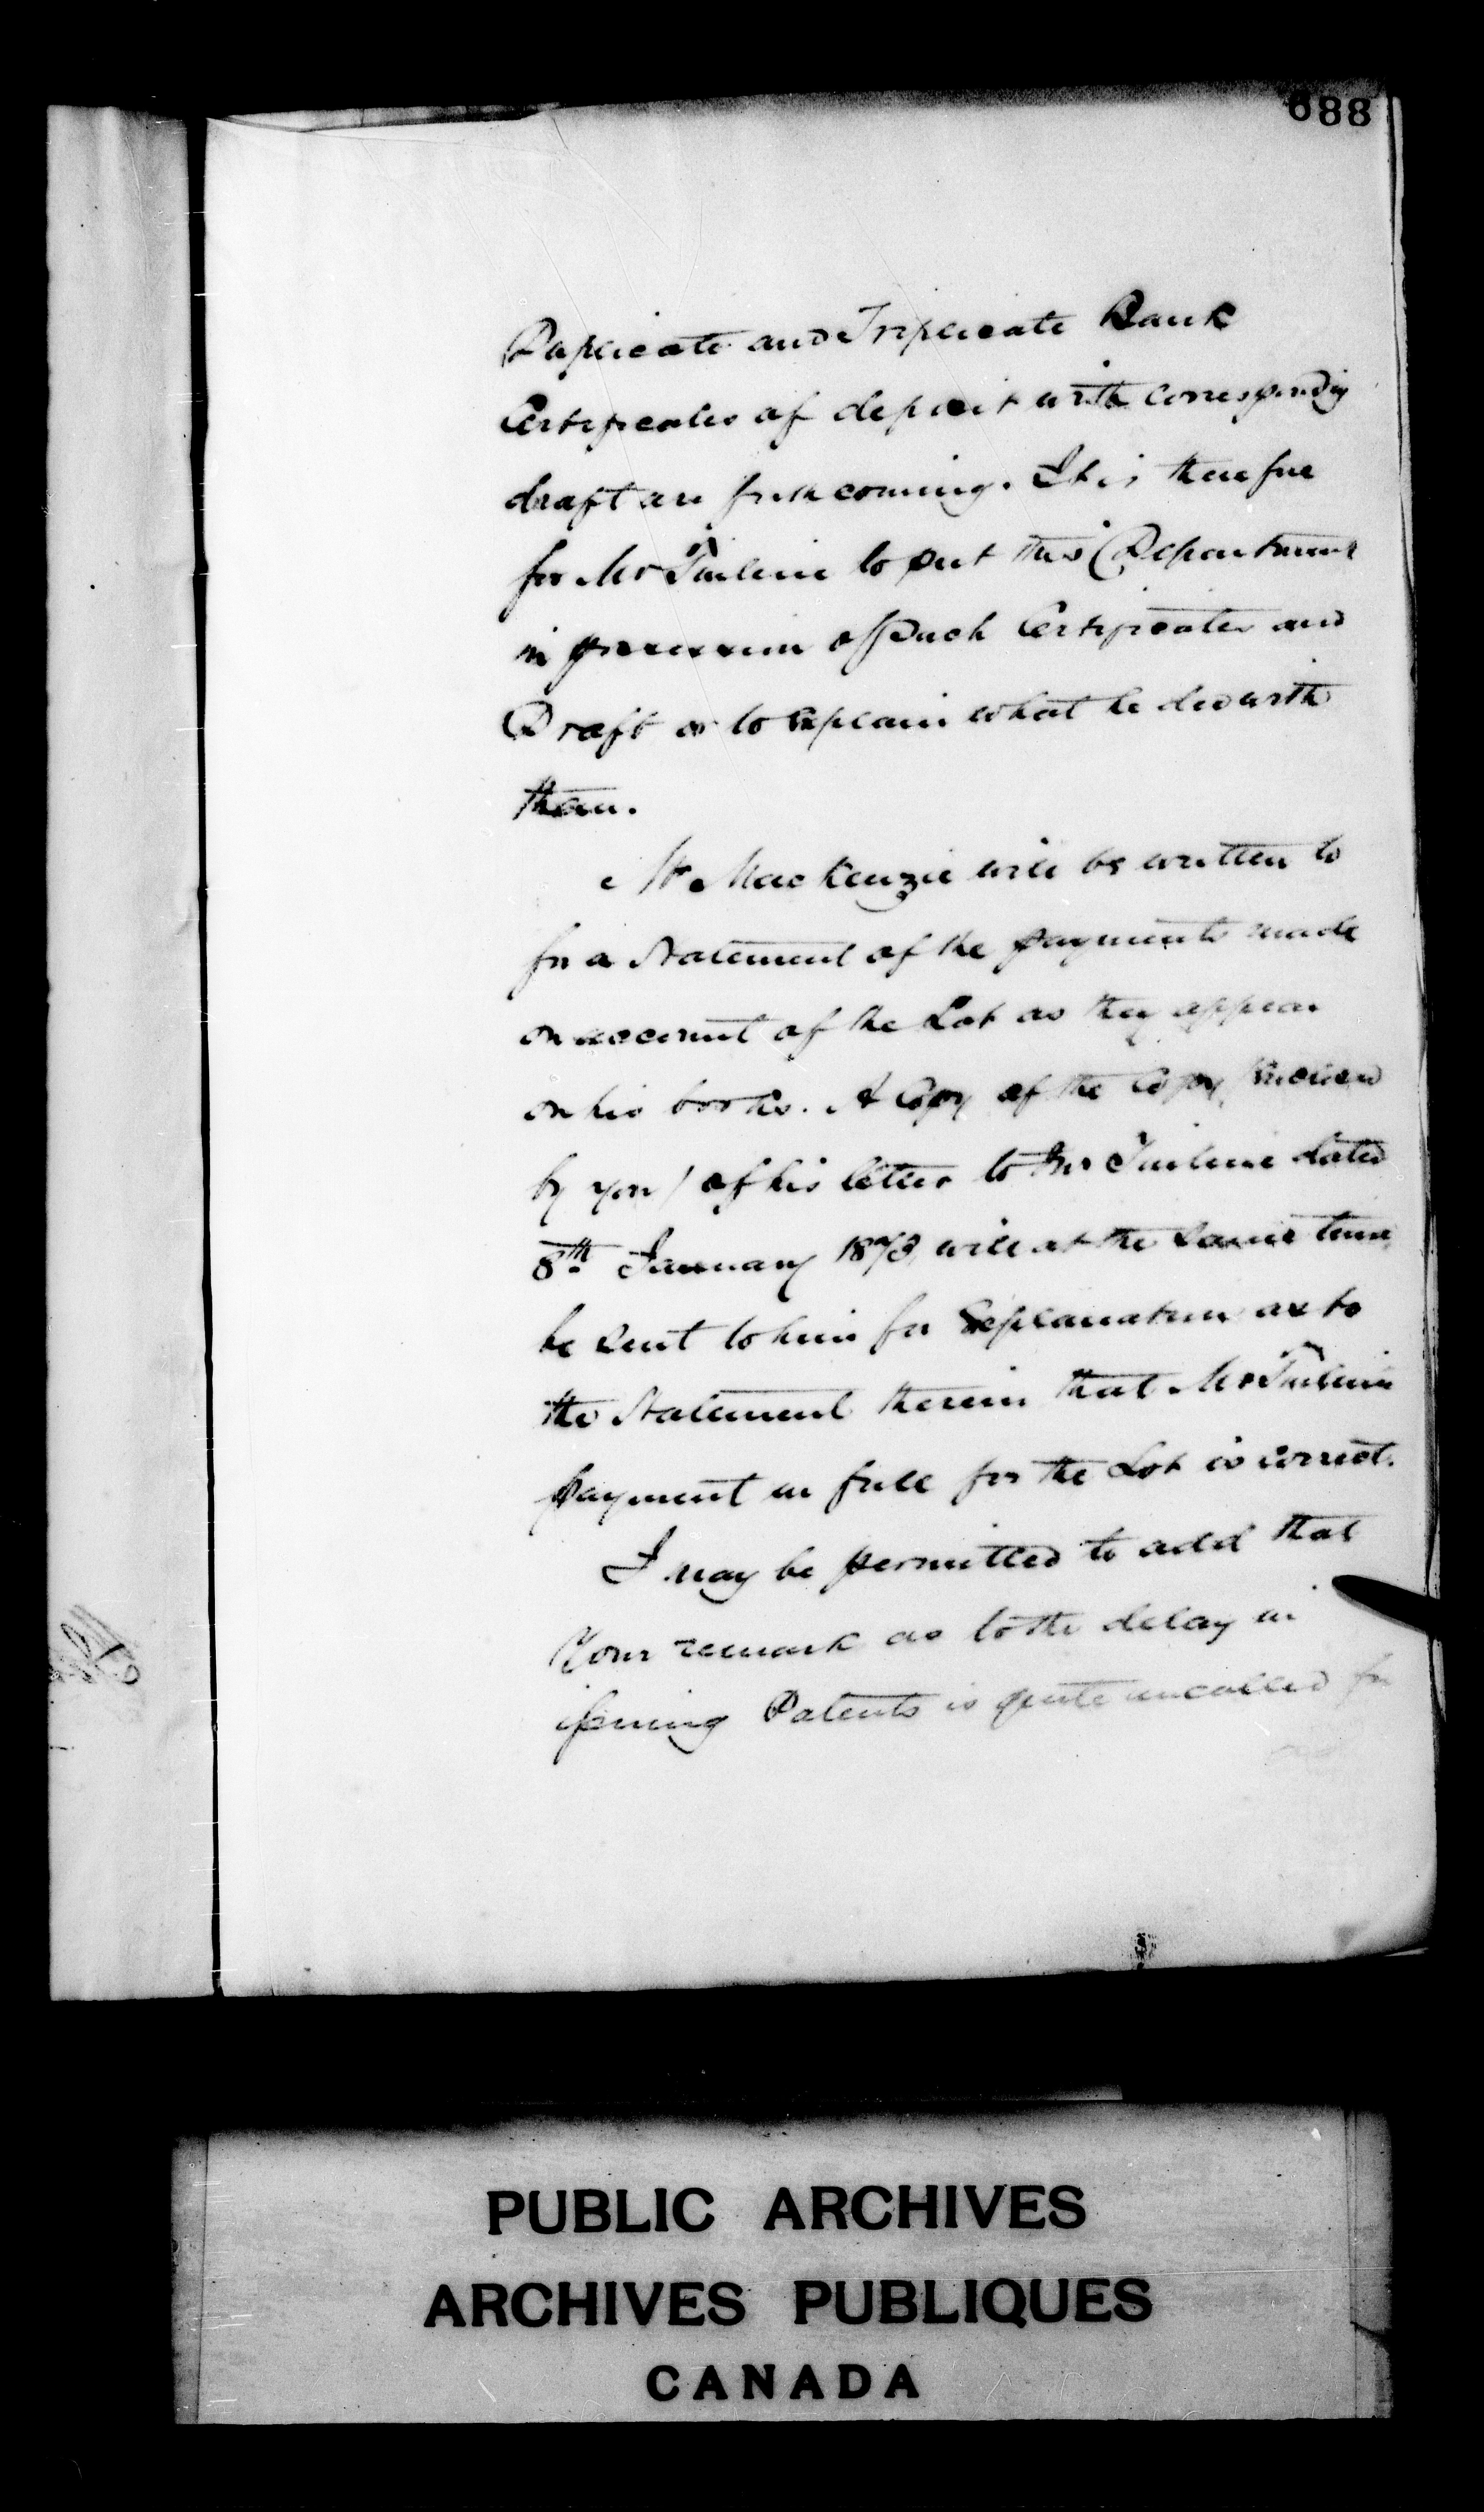 688
Duplicate and Triplicate Bank
Certificates of deposit with corresponding
draft are forthcoming. It is therefore
for Mr to put this Department
in possession of such Certificates and
Draft or to Explain what he did with
them.
Mr MacKenzie will be written to
for a Statement of the payments made
on account of the Lot as they appear
on his books. A Copy of the Copy (Enclosed
by you) of his letter to Mr dated
8th January 1873, will at the same time
be sent to him for Explanation as to
the Statement therein that Mr
payment in full for the Lot is correct.
I may be permitted to add that
Your remark as to the delay in
issuing Patents is quite uncalled for
PUBLIC ARCHIVES
ARCHIVES PUBLIQUES
CANADA